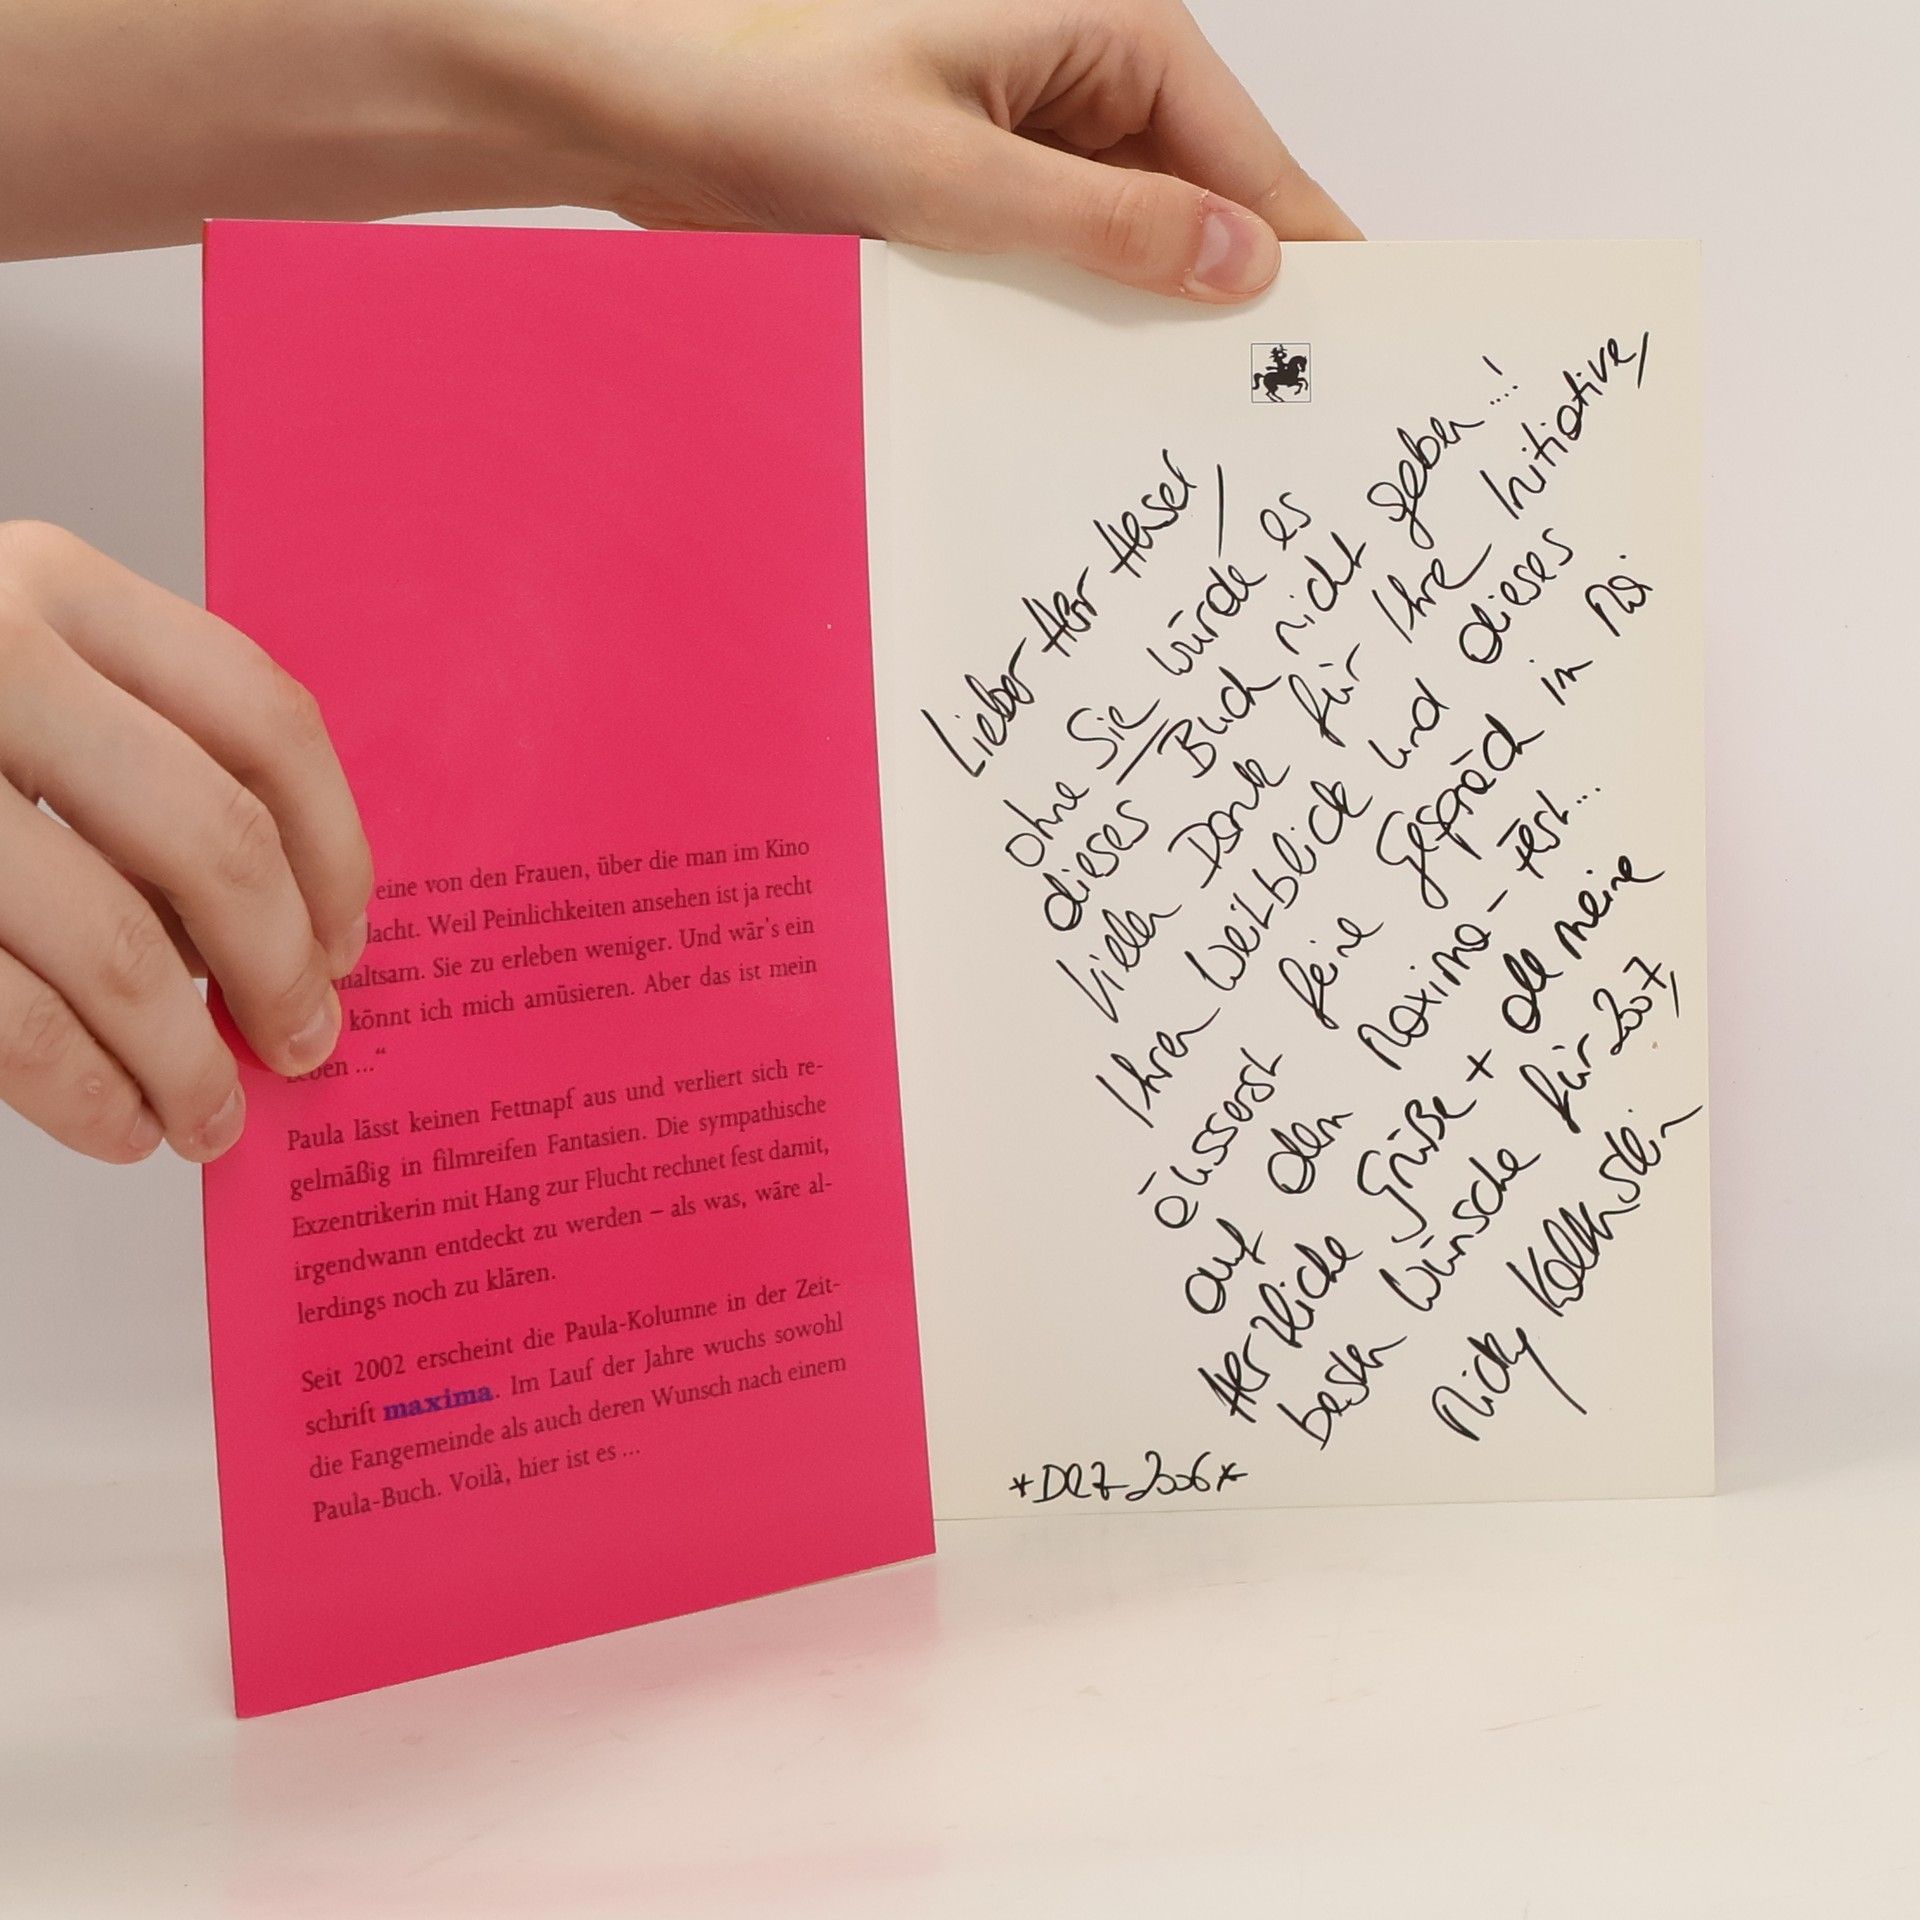 eine von den Frauen, über die man im Kino
lacht. Weil Peinlichkeiten ansehen ist ja recht
haltsam. Sie zu erleben weniger. Und wär's ein
könnt ich mich amüsieren. Aber das ist mein
Leben ..."
Paula lässt keinen Fettnapf aus und verliert sich re-
gelmäßig in filmreifen Fantasien. Die sympathische
Exzentrikerin mit Hang zur Flucht rechnet fest damit,
irgendwann entdeckt zu werden – als was, wäre al-
lerdings noch zu klären.
Seit 2002 erscheint die Paula-Kolumne in der Zeit-
schrift maxima. Im Lauf der Jahre wuchs sowohl
die Fangemeinde als auch deren Wunsch nach einem
Paula-Buch. Voilà, hier ist es ...
Lieber Herr
ohne Sie würde es
dieses Buch nicht geben...!
Vielen Dank für Ihre Initiative,
Ihren Weitblick und dieses
äusserst feine Gespräch im Mai
auf dem Maxima-Fest...
Herzliche Grüße + all meine
besten Wünsche für 2007
Nicky
*DEZ 2006*